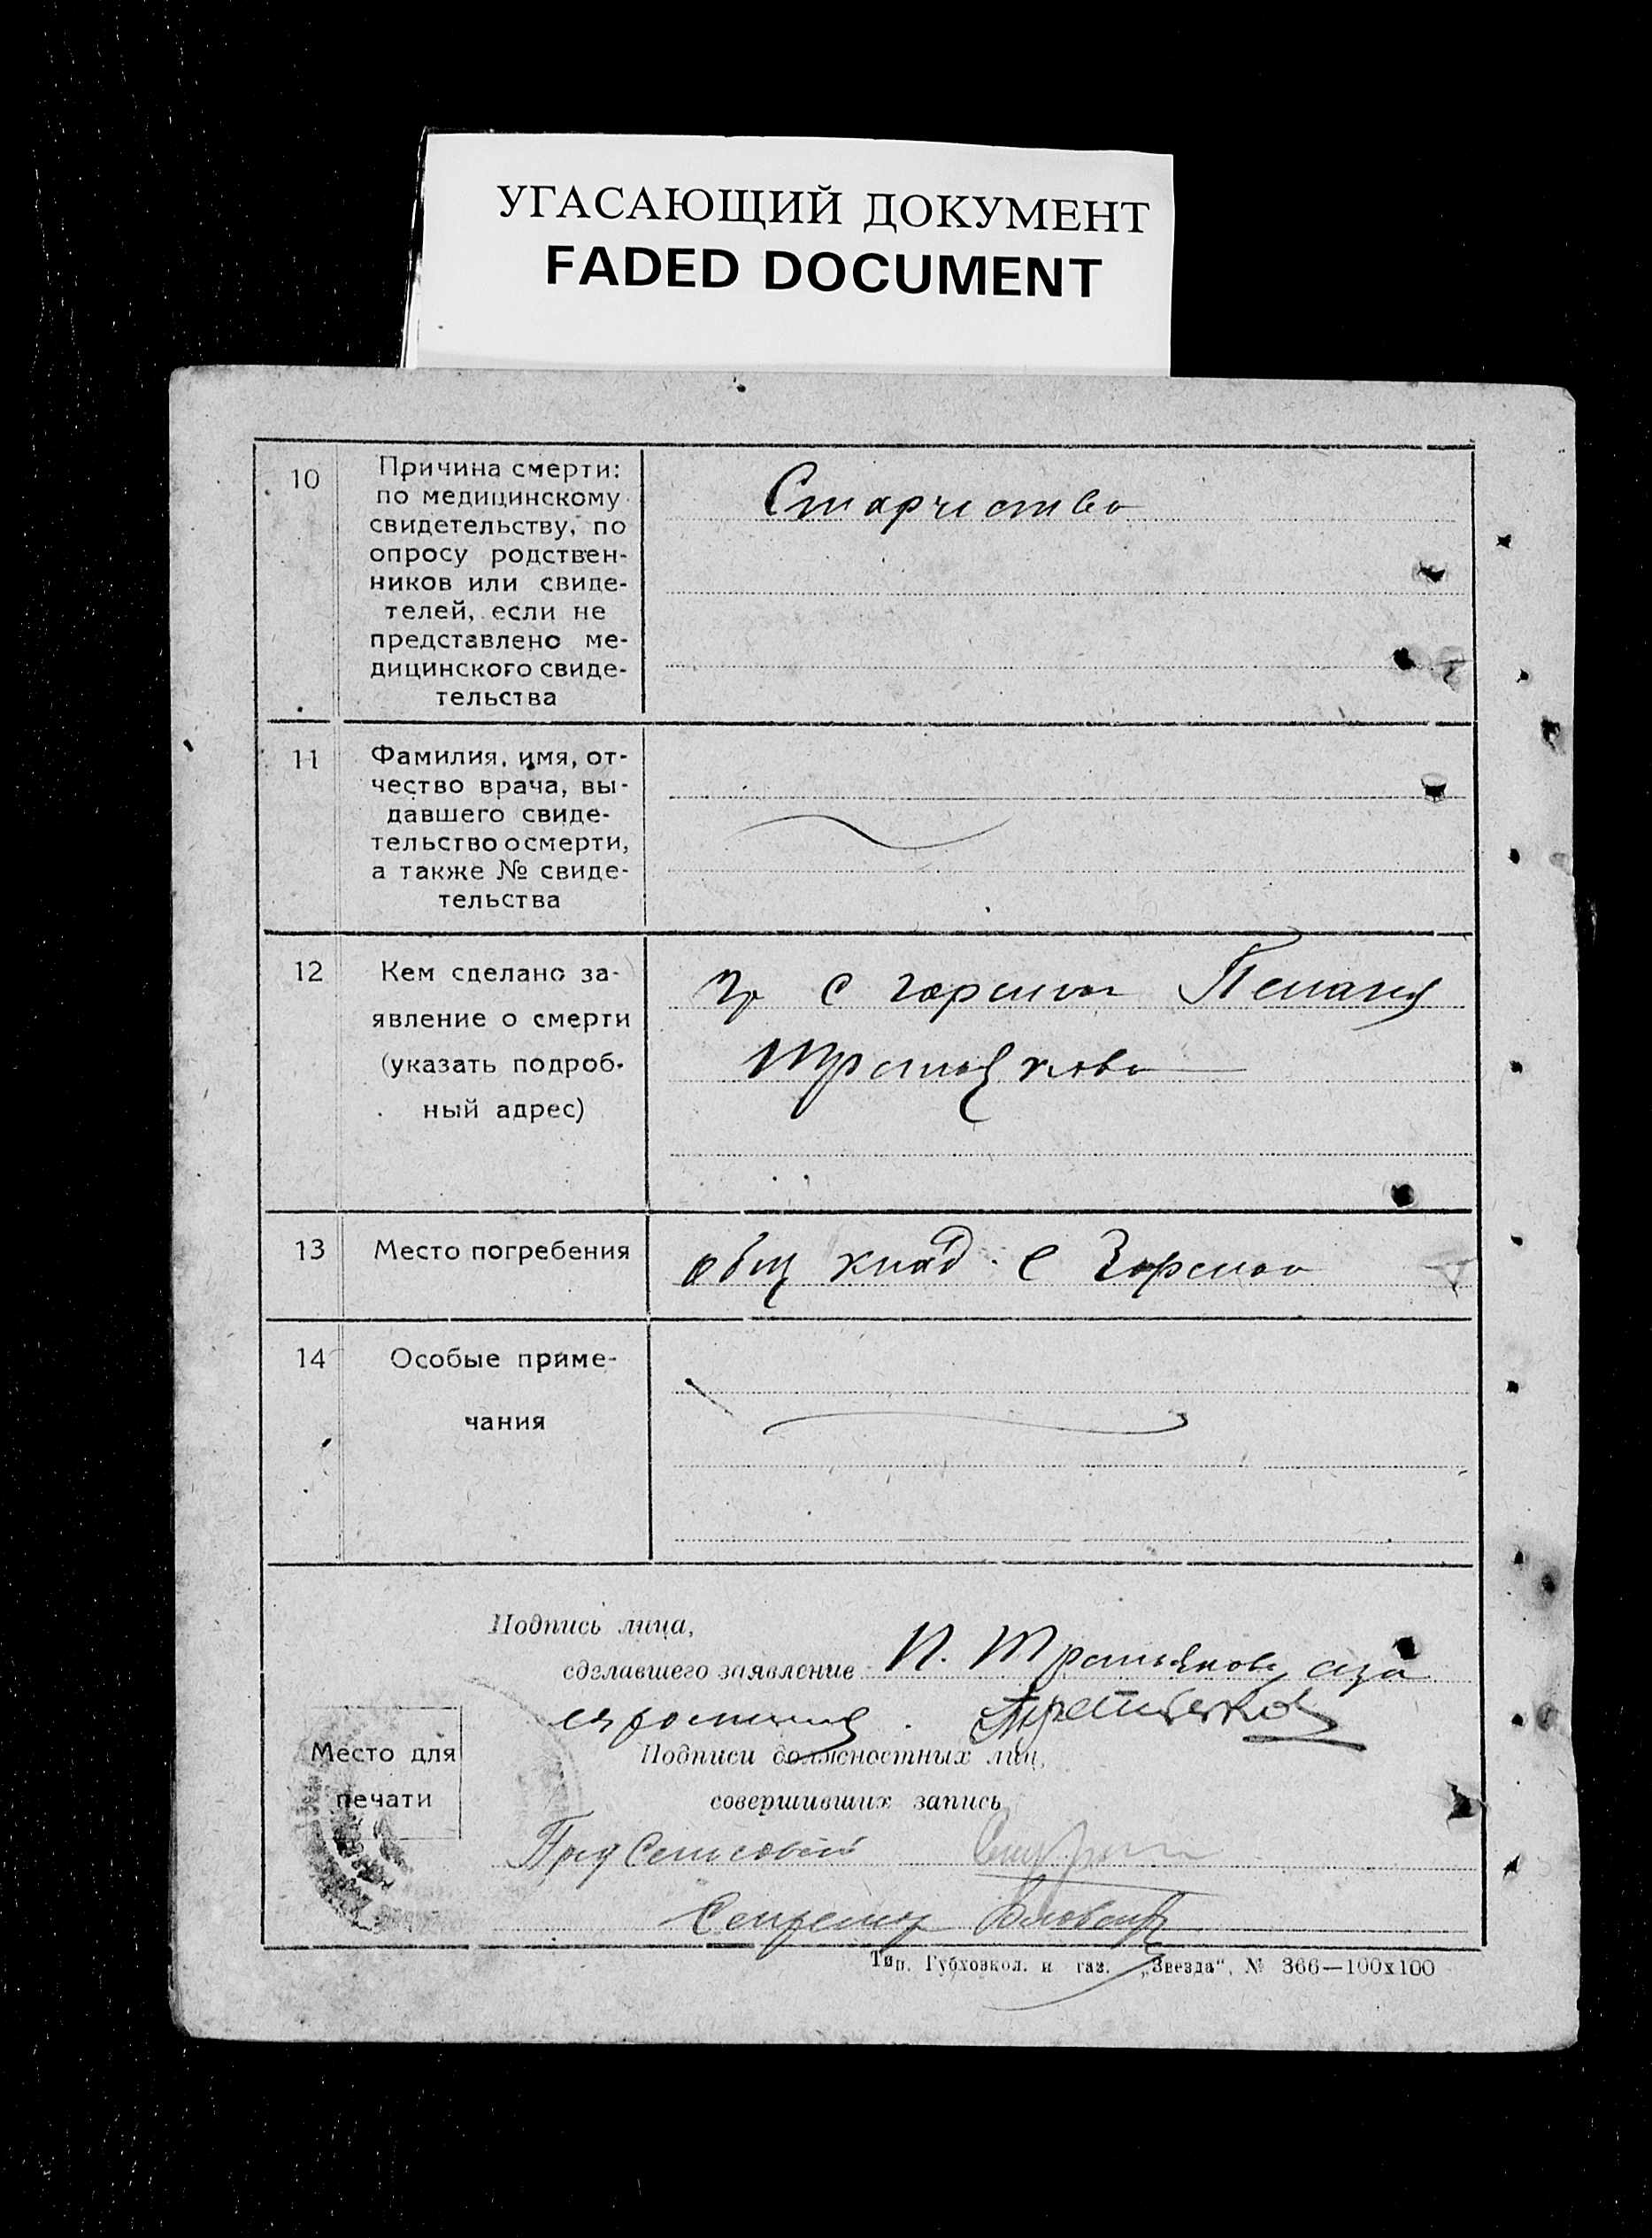 УГАСАЮЩИЙ ДОКУМЕНТ
FADED DOCUMENT
10
Причина смерти:
по медицинскому
свидетельству, по
опросу родствен-
ников или свиде-
телей, если не
представлено ме-
дицинского свиде-
тельства
Старчество
11
Фамилия, имя, от-
чество врача, вы-
давшего свиде-
тельство о смерти,
а также № свиде-
тельства
12
Кем сделано за-
явление о смерти
(указать подроб-
ный адрес)
гр с
13
Место погребения
общ клад. с
14
Особые приме-
чания
Подпись лица,
сделавшего заявление П.
Место для
печати
Подписи должностных лиц,
совершивших запись
Секретарь
Тип. Губховкол. и газ. „Звезда“, № 366—100х100